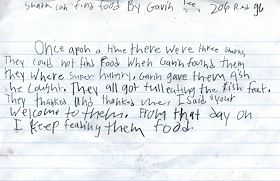 Shark can find food By Gavin Lee 206 Rm
Once apon a time there were three sharks
They could not find food When Gavin found them
They where super hungry. Gavin gave them fish
he caught. They all got full eating the fish feet.
They thanked and thanked me. I said your
welcome to them. From that day on
I keep feading them food.